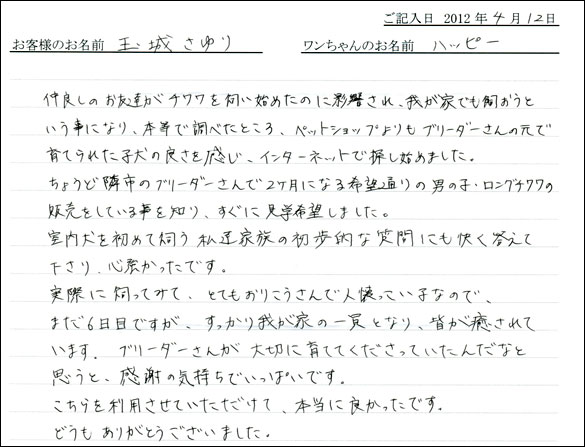 ご記入日 2012年4月12日
お客様のお名前 玉城さゆり ワンちゃんのお名前 ハッピー
仲良しのお友達がチワワを飼い始めたのに影響され、我が家でも飼おうと
いう事になり、本等で調べたところ、ペットショップよりもブリーダーさんの元で
育てられた子犬の良さを感じ、インターネットで探し始めました。
ちょうど隣市のブリーダーさんで2ヶ月になる希望通りの男の子・ロングチワワの
販売をしている事を知り、すぐに見学希望しました。
室内犬を初めて飼う私達家族の初歩的な質問にも快く答えて
下さり、心強かったです。
実際に飼ってみて、とてもおりこうさんで人懐っこい子なので、
まだ6日目ですが、すっかり我が家の一員となり、皆が癒されて
います。ブリーダーさんが大切に育ててくださっていたんだなと
思うと、感謝の気持ちでいっぱいです。
こちらを利用させていただけて、本当に良かったです。
どうもありがとうございました。